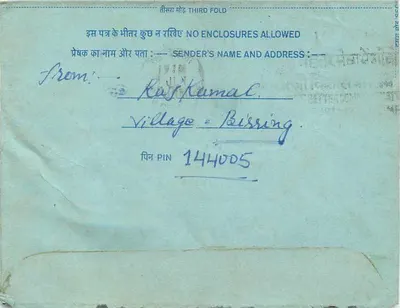 तीसरा मोड़ THIRD FOLD
इस पत्र के भीतर कुछ न रखिए NO ENCLOSURES ALLOWED
प्रेषक का नाम और पता :— SENDER'S NAME AND ADDRESS :—
From:-
Raj Kamal
Village - Bissing
पिन PIN 144005